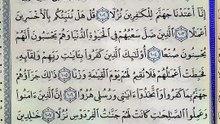 إِنَّا أَعْتَدْنَا جَهَنَّمَ لِلْكَٰفِرِينَ نُزُلًا ١٠٢ قُلْ هَلْ نُنَبِّئُكُم بِالْأَخْسَرِينَ
أَعْمَٰلًا ١٠٣ الَّذِينَ ضَلَّ سَعْيُهُمْ فِي الْحَيَوٰةِ الدُّنْيَا وَهُمْ يَحْسَبُونَ أَنَّهُمْ
يُحْسِنُونَ صُنْعًا ١٠٤ أُولَٰٓئِكَ الَّذِينَ كَفَرُوا بِـَٔايَٰتِ رَبِّهِمْ وَلِقَآئِهِ
فَحَبِطَتْ أَعْمَٰلُهُمْ فَلَا نُقِيمُ لَهُمْ يَوْمَ الْقِيَٰمَةِ وَزْنًا ١٠٥ ذَٰلِكَ جَزَآؤُهُمْ
جَهَنَّمُ بِمَا كَفَرُوا وَاتَّخَذُوٓا ءَايَٰتِي وَرُسُلِي هُزُوًا ١٠٦ إِنَّ الَّذِينَ ءَامَنُوا
وَعَمِلُوا الصَّٰلِحَٰتِ كَانَتْ لَهُمْ جَنَّٰتُ الْفِرْدَوْسِ نُزُلًا ١٠٧ خَٰلِدِينَ